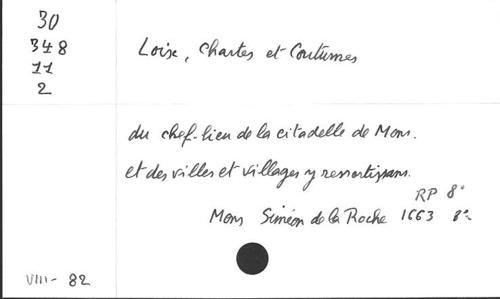 30
348
11
2
Loix, Chartes et Coutumes
du chef-lieu de la citadelle de Mons.
et des villes et villages y ressortissans.
RP 8°
Mons Siméon de la Roche 1663 8°
VIII- 82